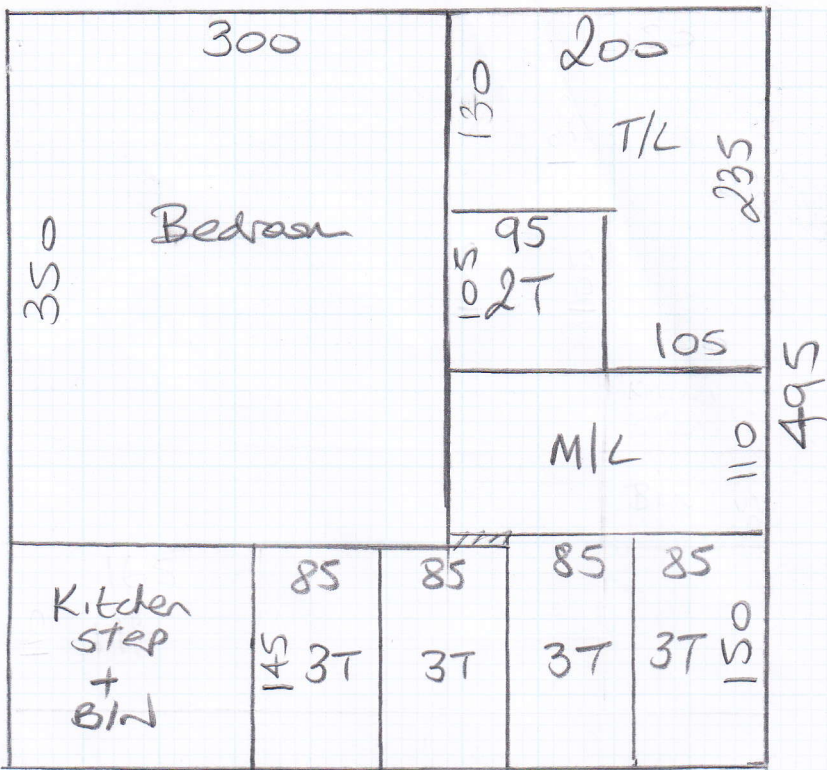 300
200
130
T/L
235
Bedroom
350
95
105
2T
105
495
M/L
110
Kitchen
step
+
BIN
85
145
3T
85
3T
85
3T
85
3T
150